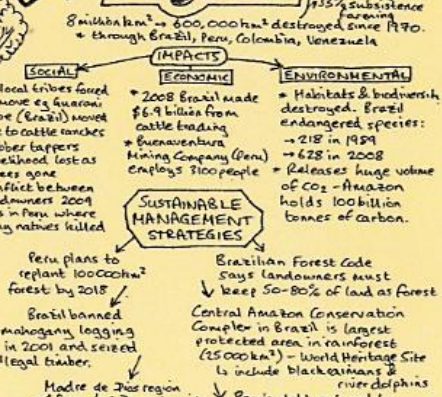 35% subsistence
farming
8 million km² → 600,000 km² destroyed since 1970.
* through Brazil, Peru, Colombia, Venezuela
IMPACTS
SOCIAL
local tribes forced
move eg Guarani
(Brazil) moved
to cattle ranches
tappers
lost as
gone
between
2009
in Peru where
natives killed
ECONOMIC
* 2008 Brazil made
$6.9 billion from
cattle trading
* Buenaventura
Mining Company (Peru)
employs 3100 people
ENVIRONMENTAL
* Habitats & biodiversity
destroyed. Brazil
endangered species:
→ 218 in 1989
→ 628 in 2008
* Releases huge volume
of CO₂ - Amazon
holds 100 billion
tonnes of carbon.
SUSTAINABLE
MANAGEMENT
STRATEGIES
Peru plans to
replant 100000km²
forest by 2018
Brazil banned
mahogany logging
in 2001 and seized
legal timber.
Madre de Dios region
Brazilian Forest Code
says landowners must
keep 50-80% of land as forest
Central Amazon Conservation
Complex in Brazil is largest
protected area in rainforest
(25000km²) - World Heritage Site
include black caimans &
river dolphins